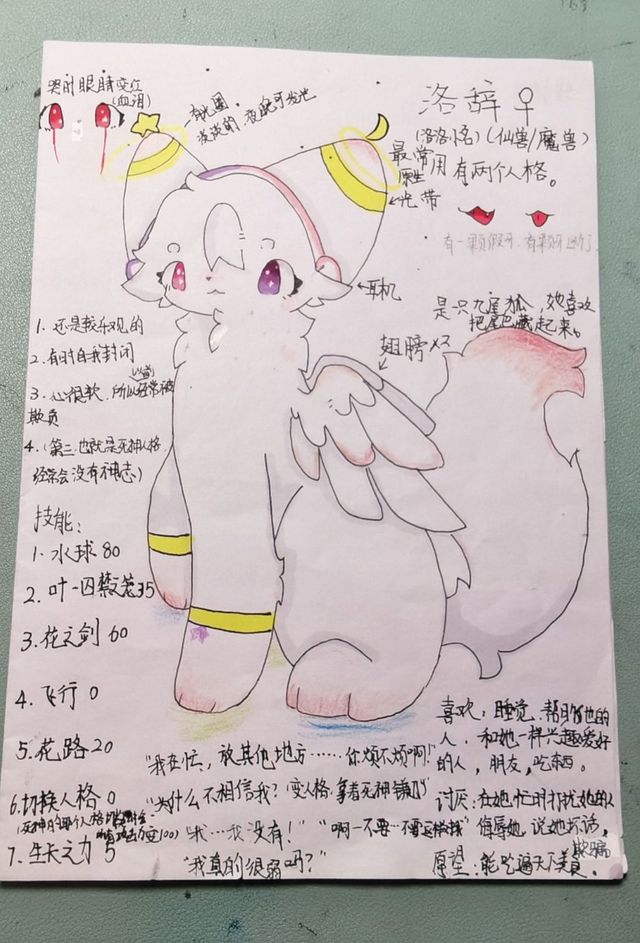 哭时眼睛变红
(血泪)
有光圈,
淡淡的 夜晚可发光
洛辞 ♀
(洛洛小名)(仙兽/魔兽)
最常用 有两个人格。
原生
←光带
有一颗假牙,有颗牙
←耳机
是只九尾狐,她喜欢
把尾巴藏起来。
翅膀×2
1. 还是较乐观的
2. 有时自我封闭
3. 心很软,所以经常被
以前
欺负
4. (第二也就是死神人格
经常会没有神志)
技能:
1. 水球 80
2. 叶一囚禁之笼 35
3. 花之剑 60
4. 飞行 0
5. 花路 20
6. 切换人格 0
7. 生长之力 5
"我在忙,放其他地方……你烦不烦啊!"
"为什么不相信我?变人格,拿着死神镰刀"
"我…我没有!" "啊—不要…不要
"我真的很弱吗?"
喜欢:睡觉,帮助她的
人,和她一样兴趣爱好
的人,朋友,吃东西。
讨厌:在她忙时打扰她的人
侮辱她,说她坏话,
欺骗
愿望:能吃遍天下美食。